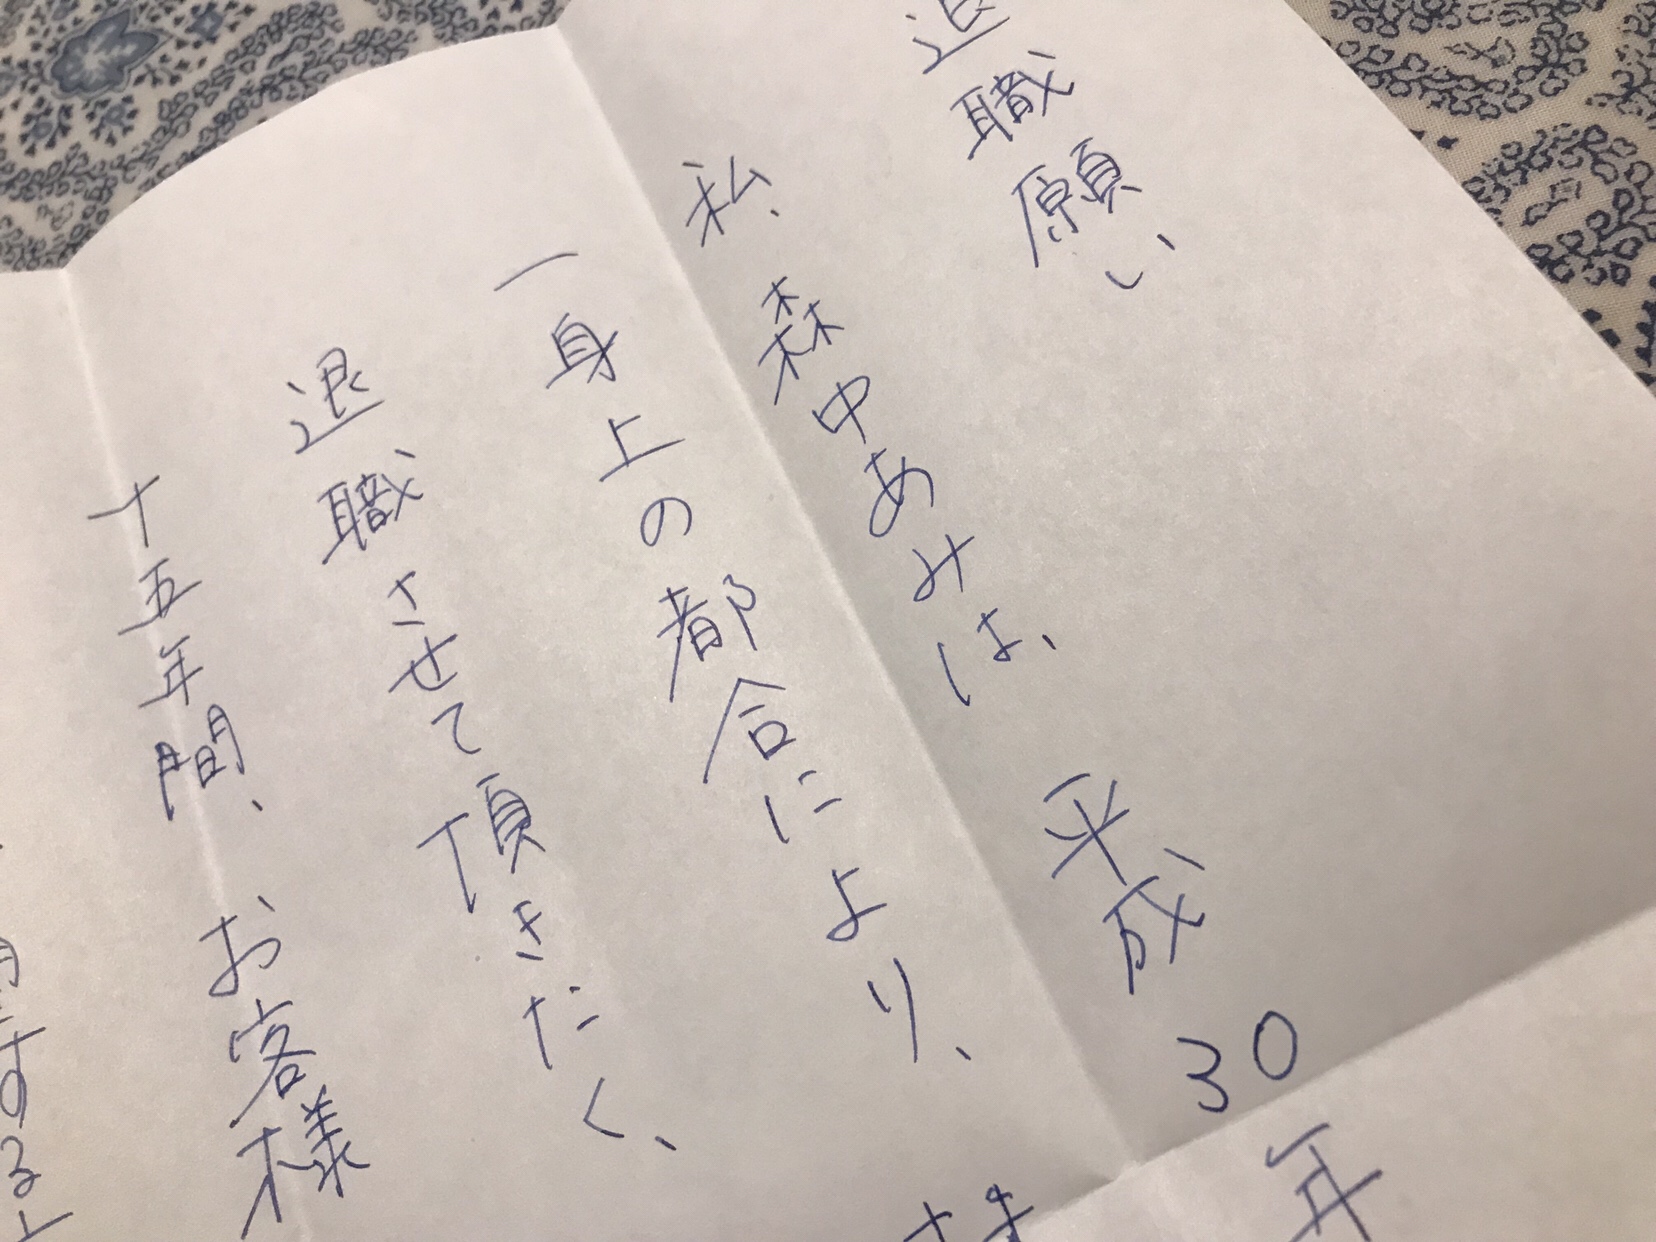 退職願い
私、森中あみは、平成30年
一身上の都合により、
退職させて頂きたく、
十五年間、お客様